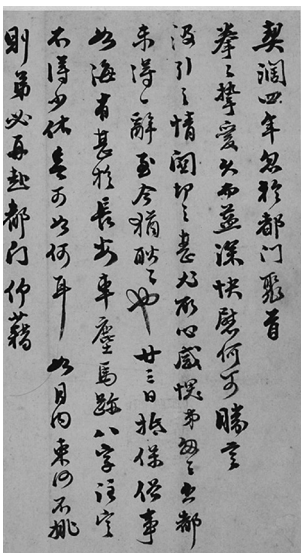 契闊四年忽於都門聚首
拳々摯愛久而益深快慰何可勝言
汲引之情關切之甚尤所心感愧弟匆々出都
未得一辭至今猶耿々也廿三日抵保俗事
如海有甚於長安車塵馬跡八字注定
不得少休奈可如何耳如月內東河不挑
則弟必再赴都門仰藉